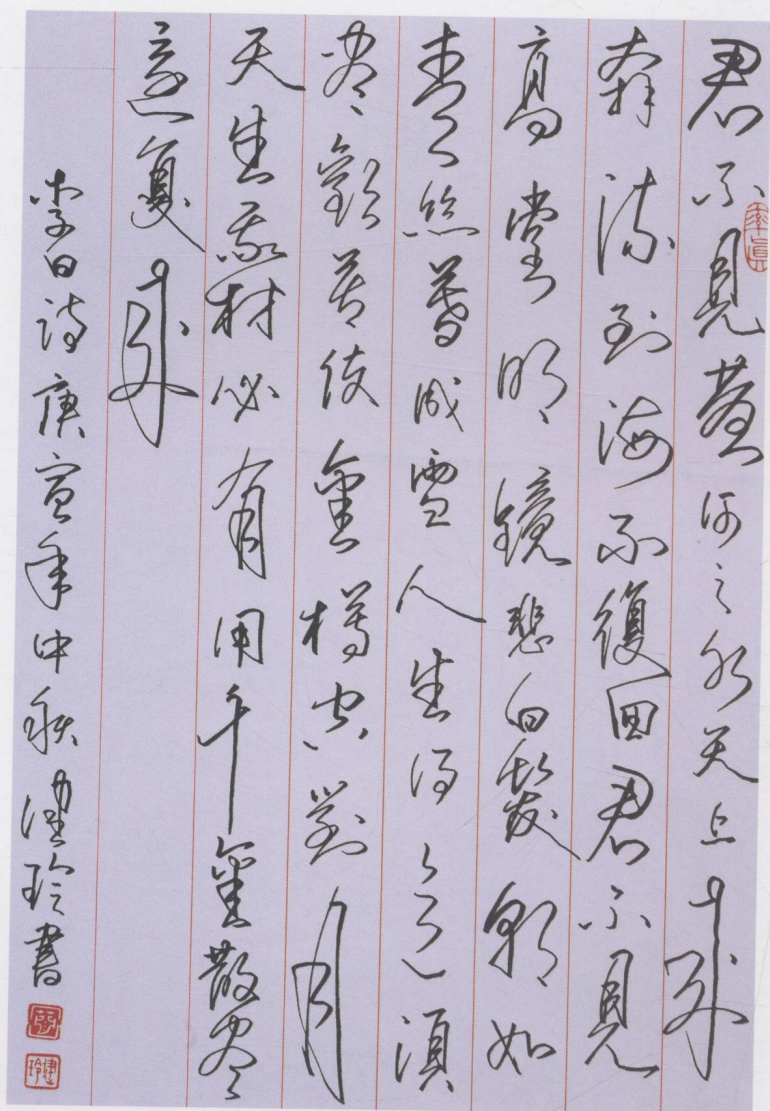 君不見黃河之水天上來
奔流到海不復回君不見
高堂明鏡悲白髮朝如
青絲暮成雪人生得意須
盡歡莫使金樽空對月
天生我材必有用千金散盡
還復來
李白詩庚寅年中秋健玲書
率真
健玲